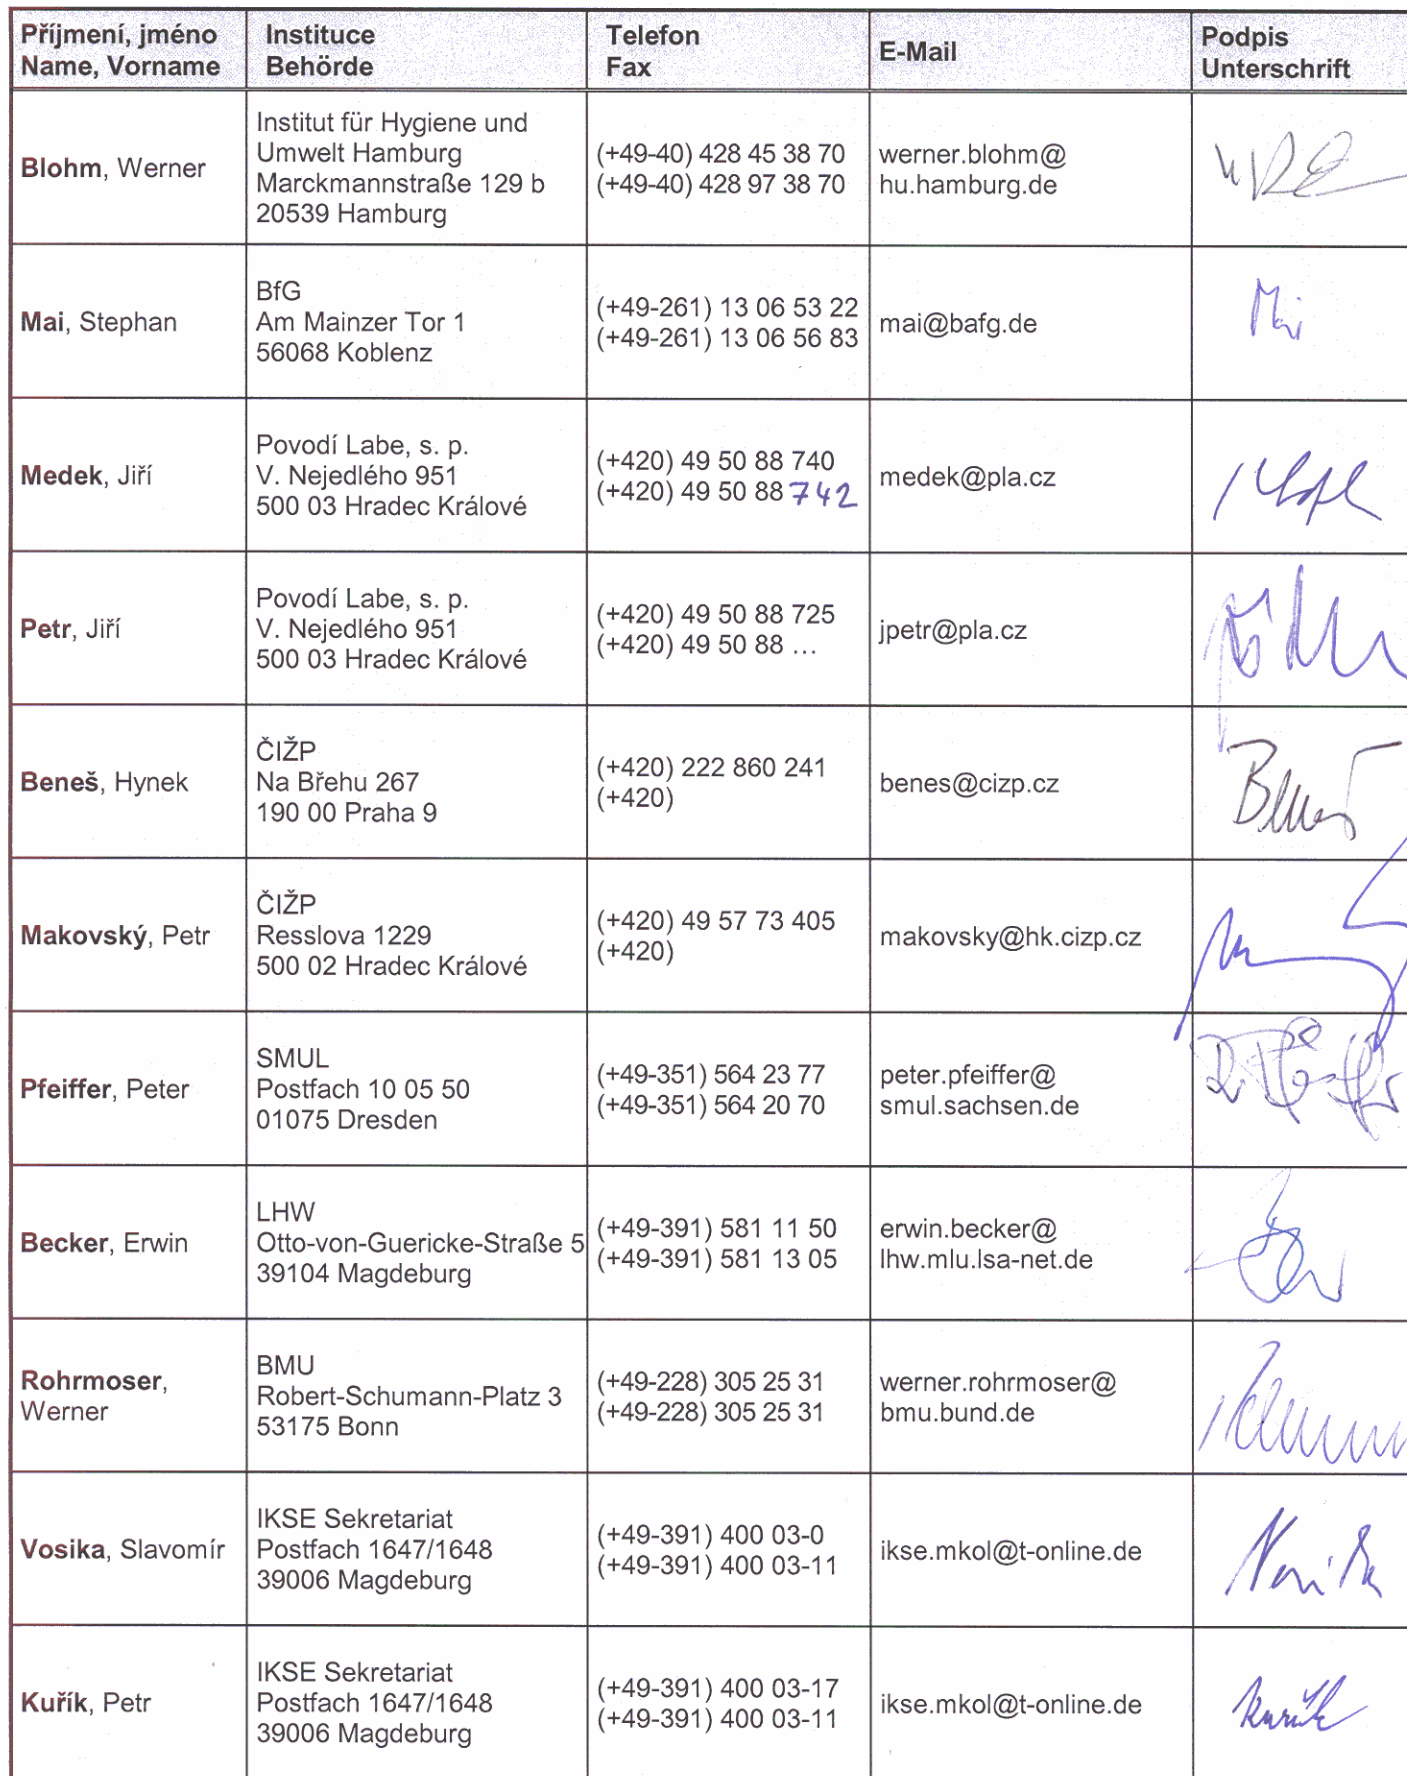 Příjmení, jméno
Name, Vorname
Instituce
Behörde
Telefon
Fax
E-Mail
Podpis
Unterschrift
Blohm, Werner
Institut für Hygiene und
Umwelt Hamburg
Marckmannstraße 129 b
20539 Hamburg
(+49-40) 428 45 38 70
(+49-40) 428 97 38 70
werner.blohm@
hu.hamburg.de
Mai, Stephan
BfG
Am Mainzer Tor 1
56068 Koblenz
(+49-261) 13 06 53 22
(+49-261) 13 06 56 83
mai@bafg.de
Mai
Medek, Jiří
Povodí Labe, s. p.
V. Nejedlého 951
500 03 Hradec Králové
(+420) 49 50 88 740
(+420) 49 50 88 742
medek@pla.cz
Petr, Jiří
Povodí Labe, s. p.
V. Nejedlého 951
500 03 Hradec Králové
(+420) 49 50 88 725
(+420) 49 50 88 ...
jpetr@pla.cz
Beneš, Hynek
ČIŽP
Na Břehu 267
190 00 Praha 9
(+420) 222 860 241
(+420)
benes@cizp.cz
Beneš
Makovský, Petr
ČIŽP
Resslova 1229
500 02 Hradec Králové
(+420) 49 57 73 405
(+420)
makovsky@hk.cizp.cz
Pfeiffer, Peter
SMUL
Postfach 10 05 50
01075 Dresden
(+49-351) 564 23 77
(+49-351) 564 20 70
peter.pfeiffer@
smul.sachsen.de
Becker, Erwin
LHW
Otto-von-Guericke-Straße 5
39104 Magdeburg
(+49-391) 581 11 50
(+49-391) 581 13 05
erwin.becker@
lhw.mlu.lsa-net.de
Rohrmoser,
Werner
BMU
Robert-Schumann-Platz 3
53175 Bonn
(+49-228) 305 25 31
(+49-228) 305 25 31
werner.rohrmoser@
bmu.bund.de
Vosika, Slavomír
IKSE Sekretariat
Postfach 1647/1648
39006 Magdeburg
(+49-391) 400 03-0
(+49-391) 400 03-11
ikse.mkol@t-online.de
Vosika
Kuřík, Petr
IKSE Sekretariat
Postfach 1647/1648
39006 Magdeburg
(+49-391) 400 03-17
(+49-391) 400 03-11
ikse.mkol@t-online.de
Kuřík